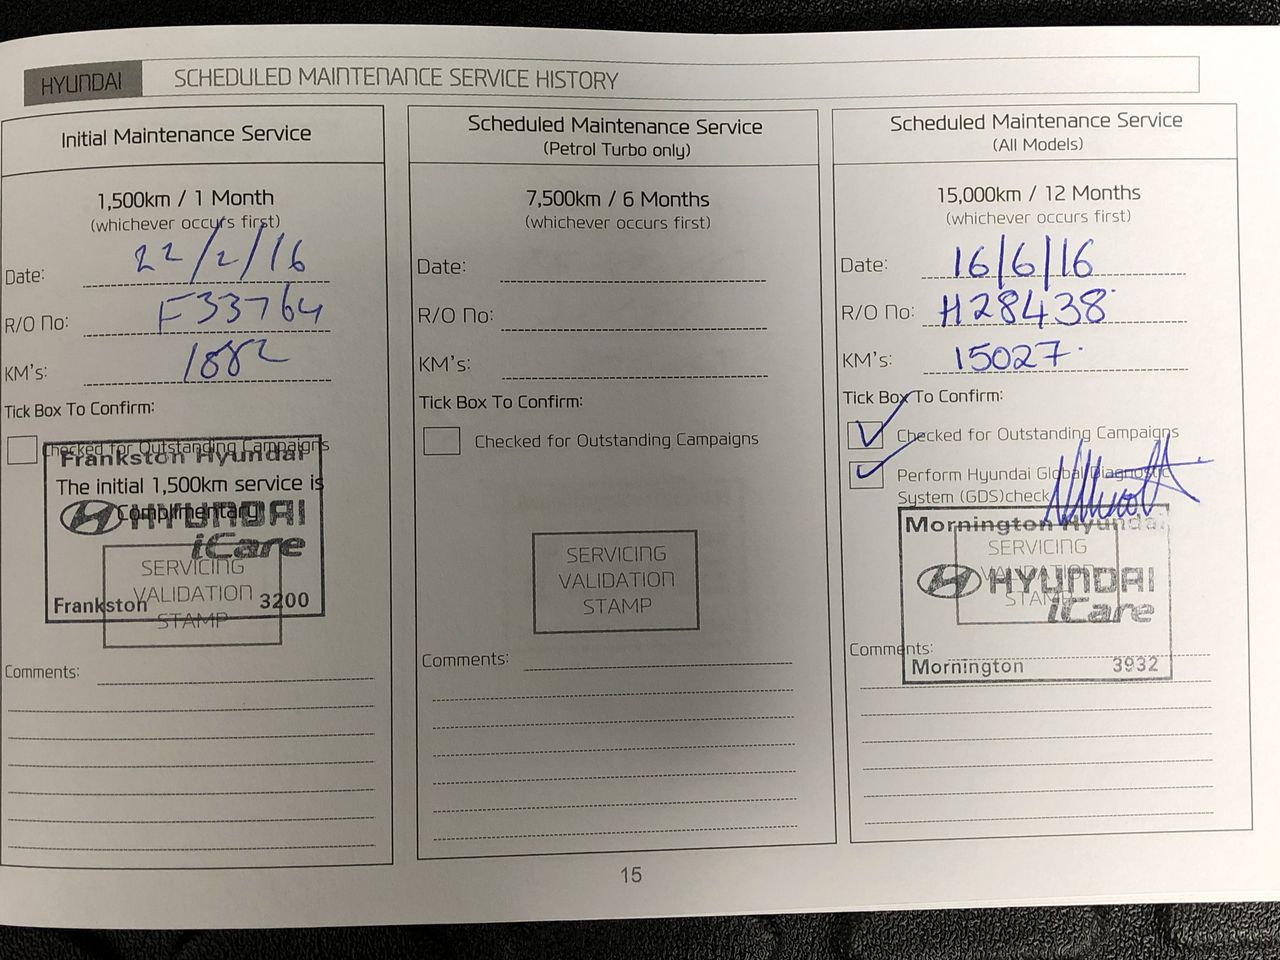 HYUNDAI SCHEDULED MAINTENANCE SERVICE HISTORY
Initial Maintenance Service
1,500km / 1 Month
(whichever occurs first)
Date: 22/2/16
R/O No: F33764
KM's: 1882
Tick Box To Confirm:
Checked for Outstanding Campaigns
Frankston Hyundai
The initial 1,500km service is
Complimentary
HYUNDAI
iCare
SERVICING
VALIDATION
STAMP
Frankston 3200
Comments:
Scheduled Maintenance Service
(Petrol Turbo only)
7,500km / 6 Months
(whichever occurs first)
Date:
R/O No:
KM's:
Tick Box To Confirm:
Checked for Outstanding Campaigns
SERVICING
VALIDATION
STAMP
Comments:
Scheduled Maintenance Service
(All Models)
15,000km / 12 Months
(whichever occurs first)
Date: 16/6/16
R/O No: H28438
KM's: 15027
Tick Box To Confirm:
Checked for Outstanding Campaigns
Perform Hyundai Global Diagnostic
System (GDS)check
Mornington Hyundai
SERVICING
VALIDATION
STAMP
HYUNDAI
iCare
Comments:
Mornington 3932
15